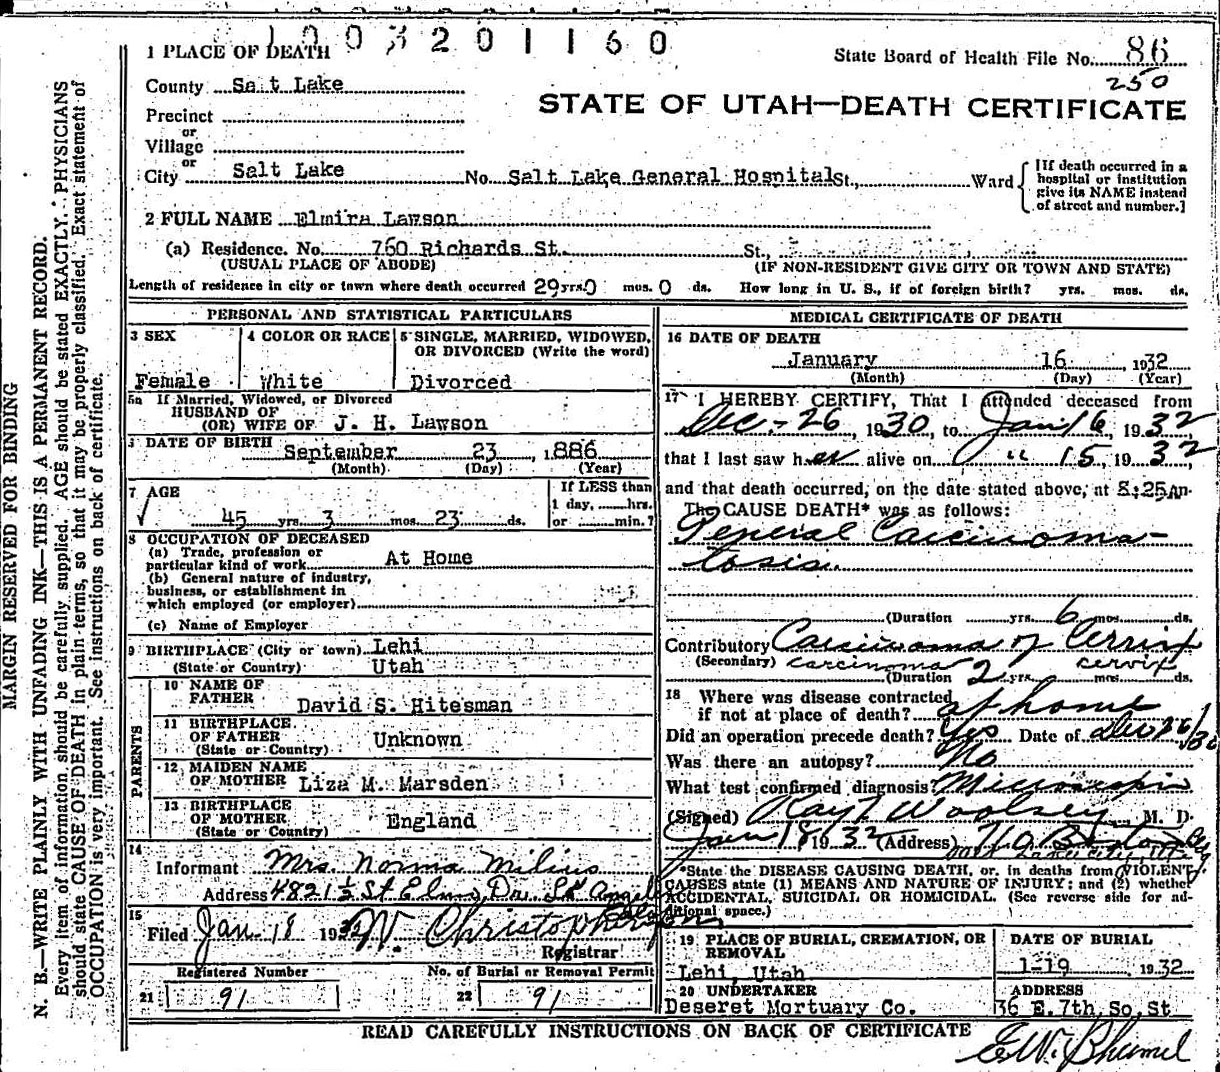 1003201160
1 PLACE OF DEATH
State Board of Health File No. 86
250
County Sa t Lake
STATE OF UTAH—DEATH CERTIFICATE
Precinct
or
Village
or
City Salt Lake No. Salt Lake General Hospital St., Ward
[If death occurred in a
hospital or institution
give its NAME instead
of street and number.]
2 FULL NAME Elmira Lawson
(a) Residence. No. 760 Richards St. St.,
(USUAL PLACE OF ABODE) (IF NON-RESIDENT GIVE CITY OR TOWN AND STATE)
Length of residence in city or town where death occurred 29 yrs. 0 mos. 0 ds. How long in U. S., if of foreign birth? yrs. mos. ds.
PERSONAL AND STATISTICAL PARTICULARS
3 SEX
Female
4 COLOR OR RACE
White
5 SINGLE, MARRIED, WIDOWED,
OR DIVORCED (Write the word)
Divorced
5a If Married, Widowed, or Divorced
HUSBAND OF
(OR) WIFE OF J. H. Lawson
DATE OF BIRTH
September 23, 1886
(Month) (Day) (Year)
7 AGE
45 yrs. 3 mos. 23 ds.
If LESS than
1 day, hrs.
or min.?
8 OCCUPATION OF DECEASED
(a) Trade, profession or
particular kind of work At Home
(b) General nature of industry,
business, or establishment in
which employed (or employer)
(c) Name of Employer
9 BIRTHPLACE (City or town) Lehi
(State or Country) Utah
PARENTS
10 NAME OF
FATHER David S. Hitesman
11 BIRTHPLACE
OF FATHER Unknown
(State or Country)
12 MAIDEN NAME
OF MOTHER Liza M. Marsden
13 BIRTHPLACE
OF MOTHER England
(State or Country)
14
Informant Mrs. Norma Milius
Address 4821 1/2 St Elmo Dr. Ls Angeles
15
Filed Jan 18 1932 W. Christopherson
Registrar
Registered Number
21 91
No. of Burial or Removal Permit
22 91
MEDICAL CERTIFICATE OF DEATH
16 DATE OF DEATH
January 16 1932
(Month) (Day) (Year)
17 I HEREBY CERTIFY, That I attended deceased from
Dec - 26, 1930, to Jan 16, 1932
that I last saw her alive on " 15, 1932
and that death occurred, on the date stated above, at 8:25 Am.
The CAUSE DEATH* was as follows:
General Carcinoma-
tosis.
(Duration yrs. 6 mos. ds.
Contributory Carcinoma of Cervix
(Secondary) carcinoma cervix
(Duration 2 yrs. mos. ds.
18 Where was disease contracted
if not at place of death? at home
Did an operation precede death? Yes Date of Dec 26/30
Was there an autopsy? No
What test confirmed diagnosis?
(Signed) Ray T Woolsey, M. D.
Jan 18 1932 (Address)
Salt Lake City, Ut
*State the DISEASE CAUSING DEATH, or, in deaths from VIOLENT
CAUSES state (1) MEANS AND NATURE OF INJURY; and (2) whether
ACCIDENTAL, SUICIDAL OR HOMICIDAL. (See reverse side for ad-
ditional space.)
19 PLACE OF BURIAL, CREMATION, OR
REMOVAL
Lehi, Utah
DATE OF BURIAL
1-19 1932
20 UNDERTAKER
Deseret Mortuary Co.
ADDRESS
36 E. 7th So. St
READ CAREFULLY INSTRUCTIONS ON BACK OF CERTIFICATE
MARGIN RESERVED FOR BINDING
N. B.—WRITE PLAINLY WITH UNFADING INK—THIS IS A PERMANENT RECORD.
Every item of information should be carefully supplied. AGE should be stated EXACTLY. PHYSICIANS
should state CAUSE OF DEATH in plain terms, so that it may be properly classified. Exact statement of
OCCUPATION is very important. See instructions on back of certificate.